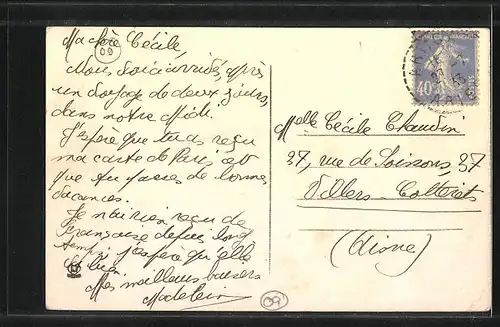 Ma chère Cécile,
09
Nous voici arrivés, après
un voyage de deux jours,
dans notre Midi.
J'espère que tu as reçu
ma carte de Paris et
que tu passes de bonnes
vacances.
Je n'ai rien reçu de
Françoise depuis long
temps j'espère qu'elle
Mes meilleurs baisers
40
Melle Cécile Chaudin
37, rue de Soissons, 37
Villers-Cotterêts
(Aisne)
09